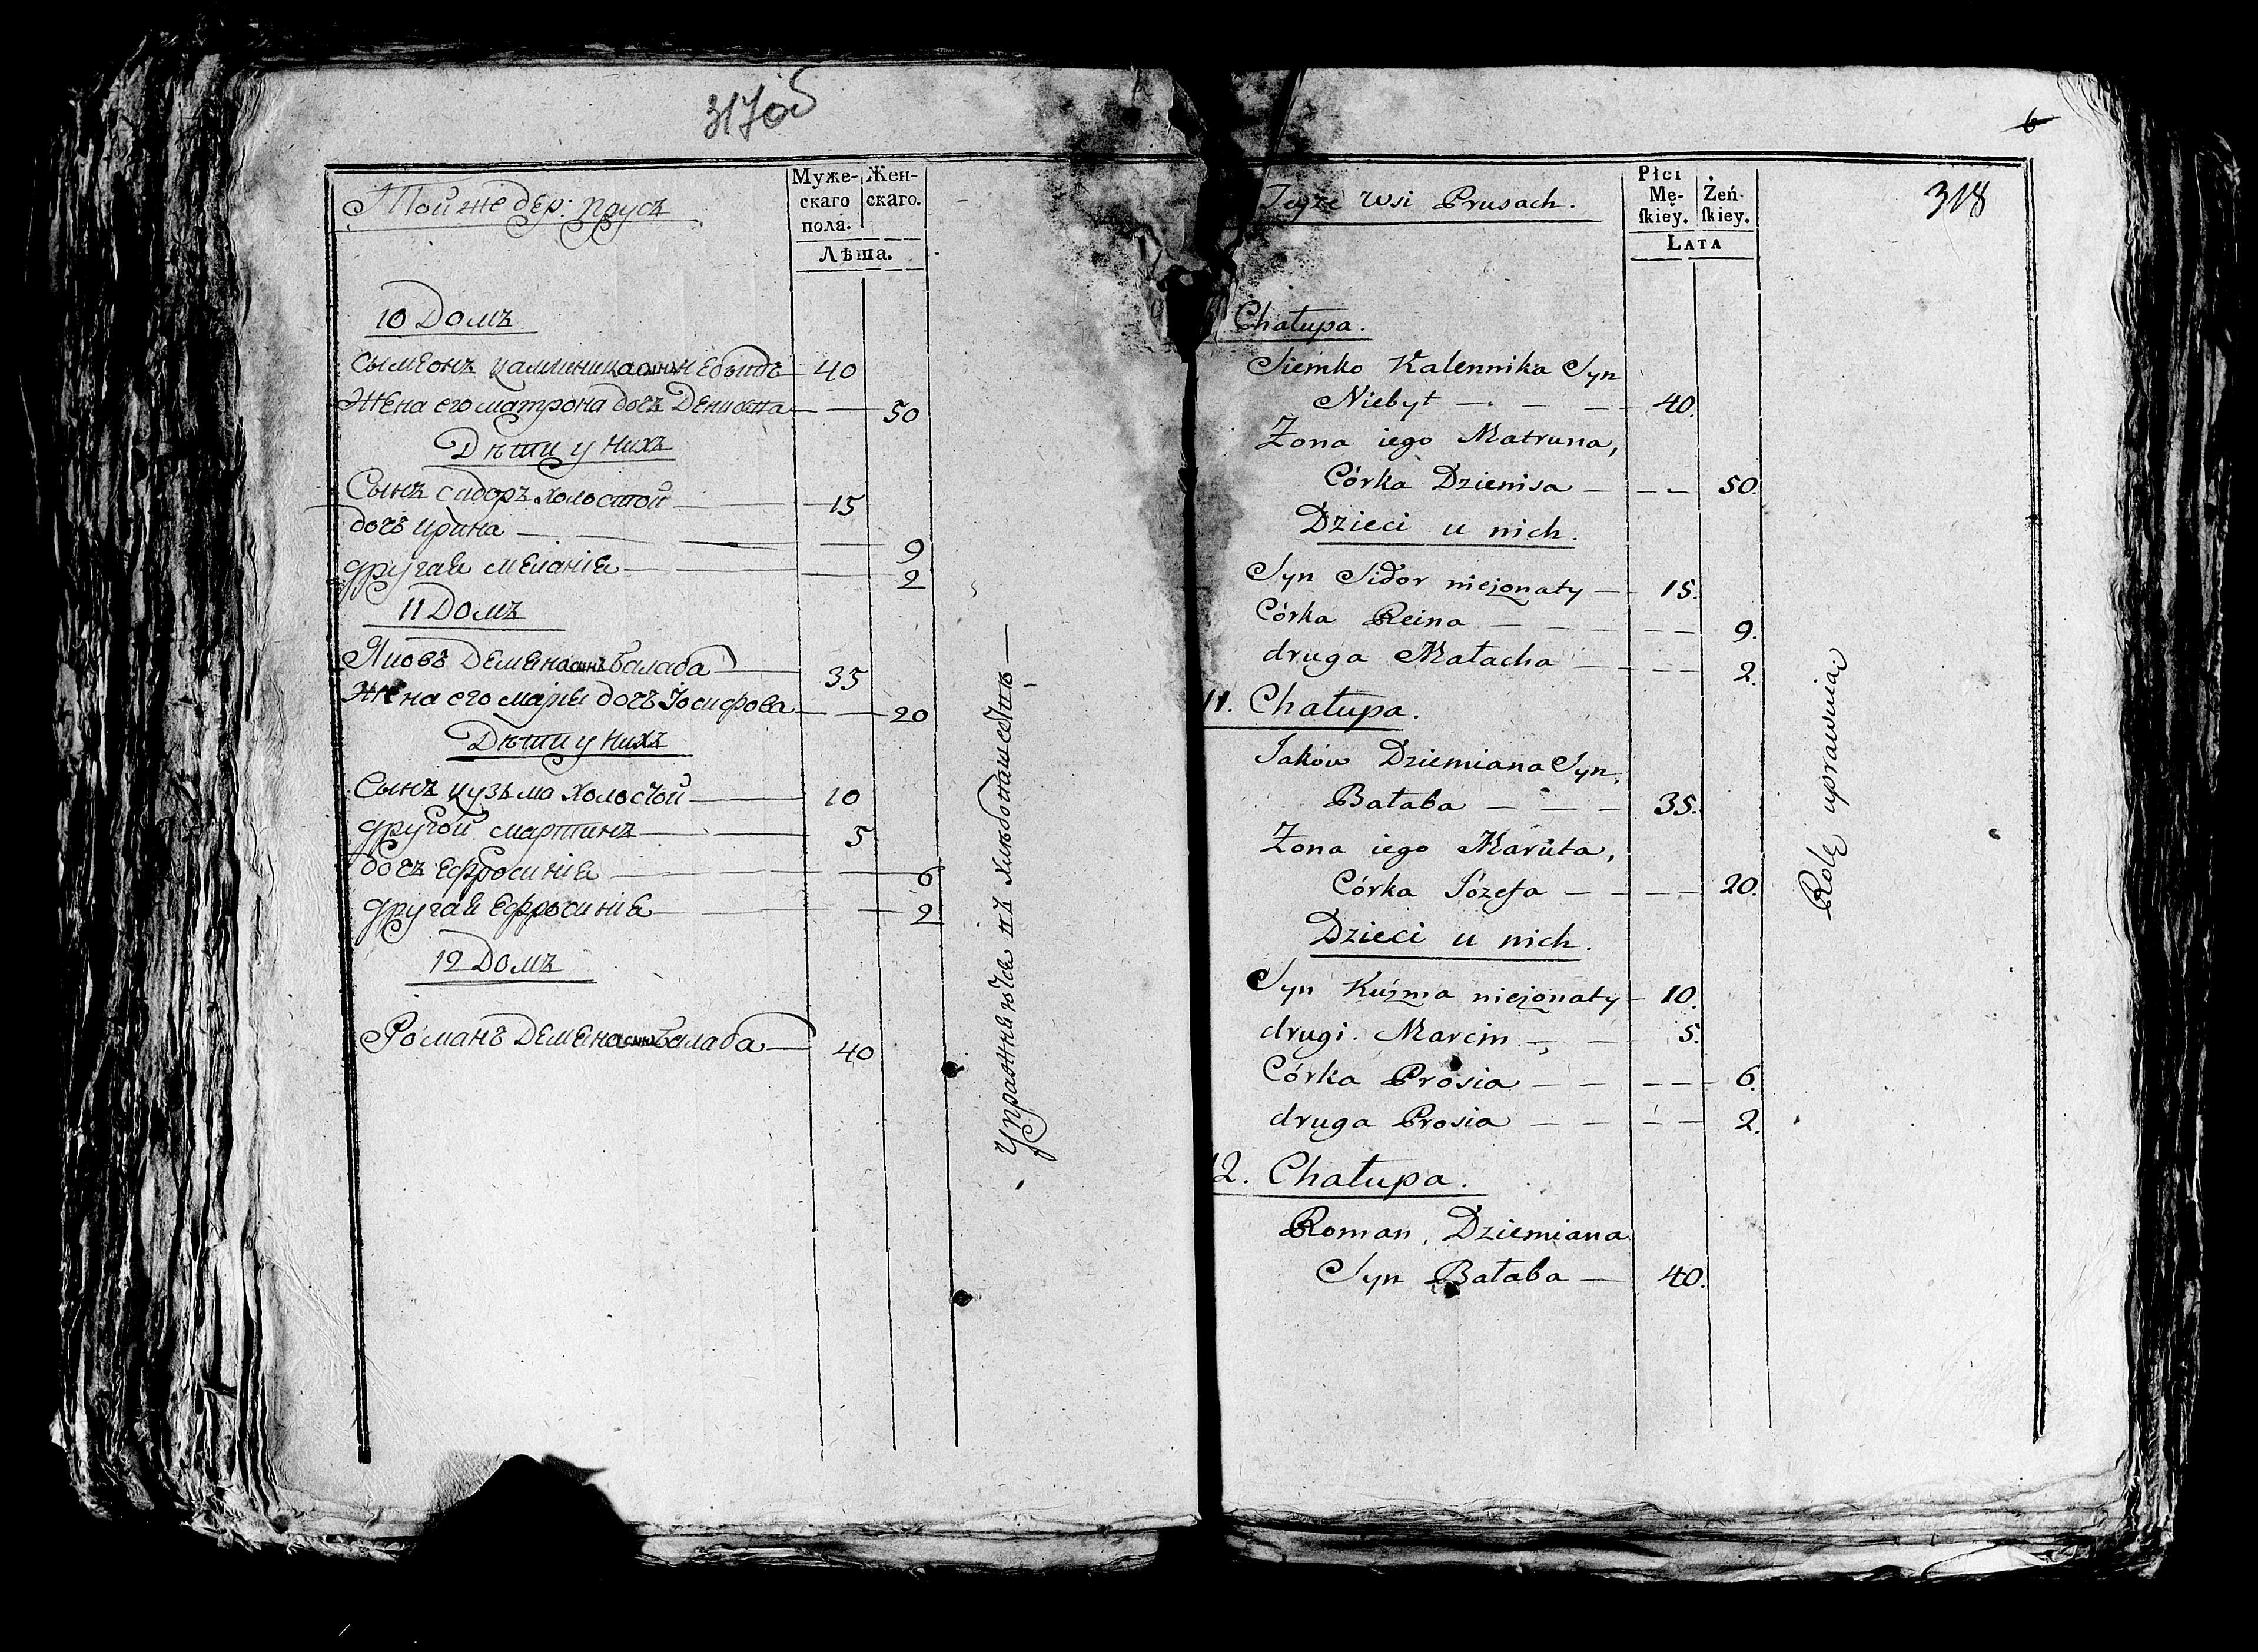 317об
Тойже дер: Прусъ
Муже-
скаго
пола.
Жен-
скаго.
Лѣта.
10 Домъ
Сымеонъ Калиника сынъ Небытъ 40
Жена его матрона дочъ Дениса 50
Дѣти у нихъ
Сынъ сидоръ холостой 15
дочъ ирина 9
другая меланія 2
11 Домъ
Яковъ Демяна сынъ балаба 35
Жена его марія дочъ Іосифова 20
Дѣти у нихъ
Сынъ кузьма холостой 10
другой мартинъ 5
дочъ ефросинія 6
другая ефросинія 2
12 Домъ
Романъ Демяна сынъ балаба 40
6
318
Teyże Wsi Prusach.
Płci
Mę-
ſkiey.
Żeń-
ſkiey.
Lata
Chałupa.
Siemko Kalennika Syn
Niebyt 40.
Żona iego Matruna,
Córka Dzienisa 50.
Dzieci u nich.
Syn Sidor nieżonaty 15.
Córka Reina 9.
druga Małacha 2.
11. Chałupa.
Jaków Dziemiana Syn,
Bałaba 35.
Żona iego Maruta,
Córka Józefa 20.
Dzieci u nich.
Syn Kuźma nieżonaty 10.
drugi Marcin 5.
Córka Prosia 6.
druga Prosia 2.
12. Chałupa.
Roman, Dziemiana
Syn Bałaba 40.
Rolę uprawuiai